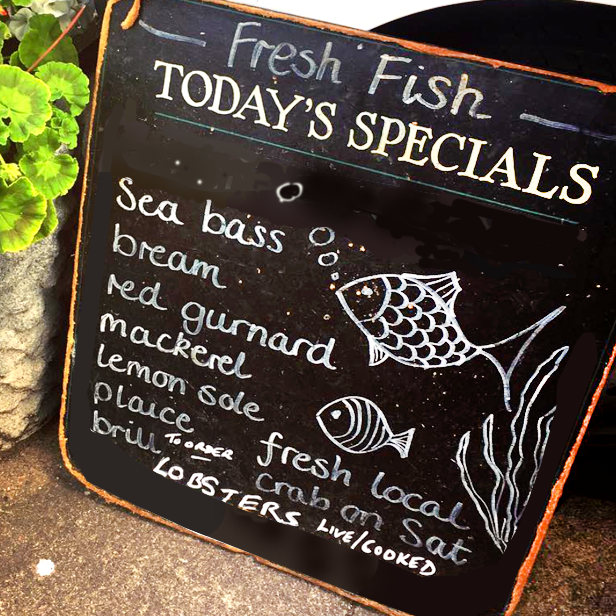 Fresh Fish
TODAY'S SPECIALS
Sea bass
bream
red gurnard
mackerel
lemon sole
plaice
brill
fresh local
crab on Sat
TO ORDER
LOBSTERS LIVE/COOKED